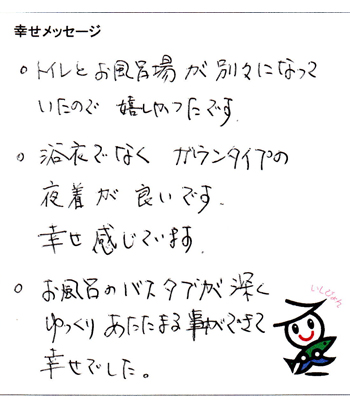 幸せメッセージ
○ トイレとお風呂場が別々になって
いたので 嬉しかったです.
○ 浴衣でなく ガウンタイプの
夜着が 良いです.
幸せ感じています.
○ お風呂のバスタブが深く
ゆっくりあたたまる事ができて
幸せでした。